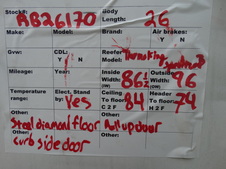 Stock#: AB26170 Body Length: 26
Make: Model: Brand: Air brakes: Y N
Gvw: CDL: Y N Reefer Model: Thermoking
Mileage: Year: Inside Width: (IW) 86½ Outside Width: (OW) 96
Temperature range: Elect. Stand by: Yes Ceiling To floor: C 2 F 84 Header To floor: H 2 F 74
Other: Steel diamond floor Other: Rollup door
Other: curb side door Other: